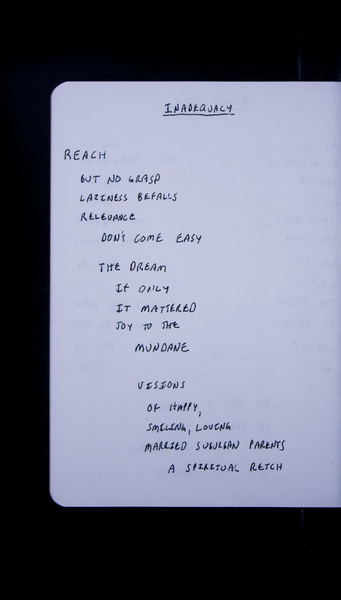 INADEQUACY
REACH
BUT NO GRASP
LAZINESS BEFALLS
RELEVANCE
DON'T COME EASY
THE DREAM
IF ONLY
IT MATTERED
JOY TO THE
MUNDANE
VISIONS
OF HAPPY,
SMILING, LOVING
MARRIED SUBURBAN PARENTS
A SPIRITUAL RETCH